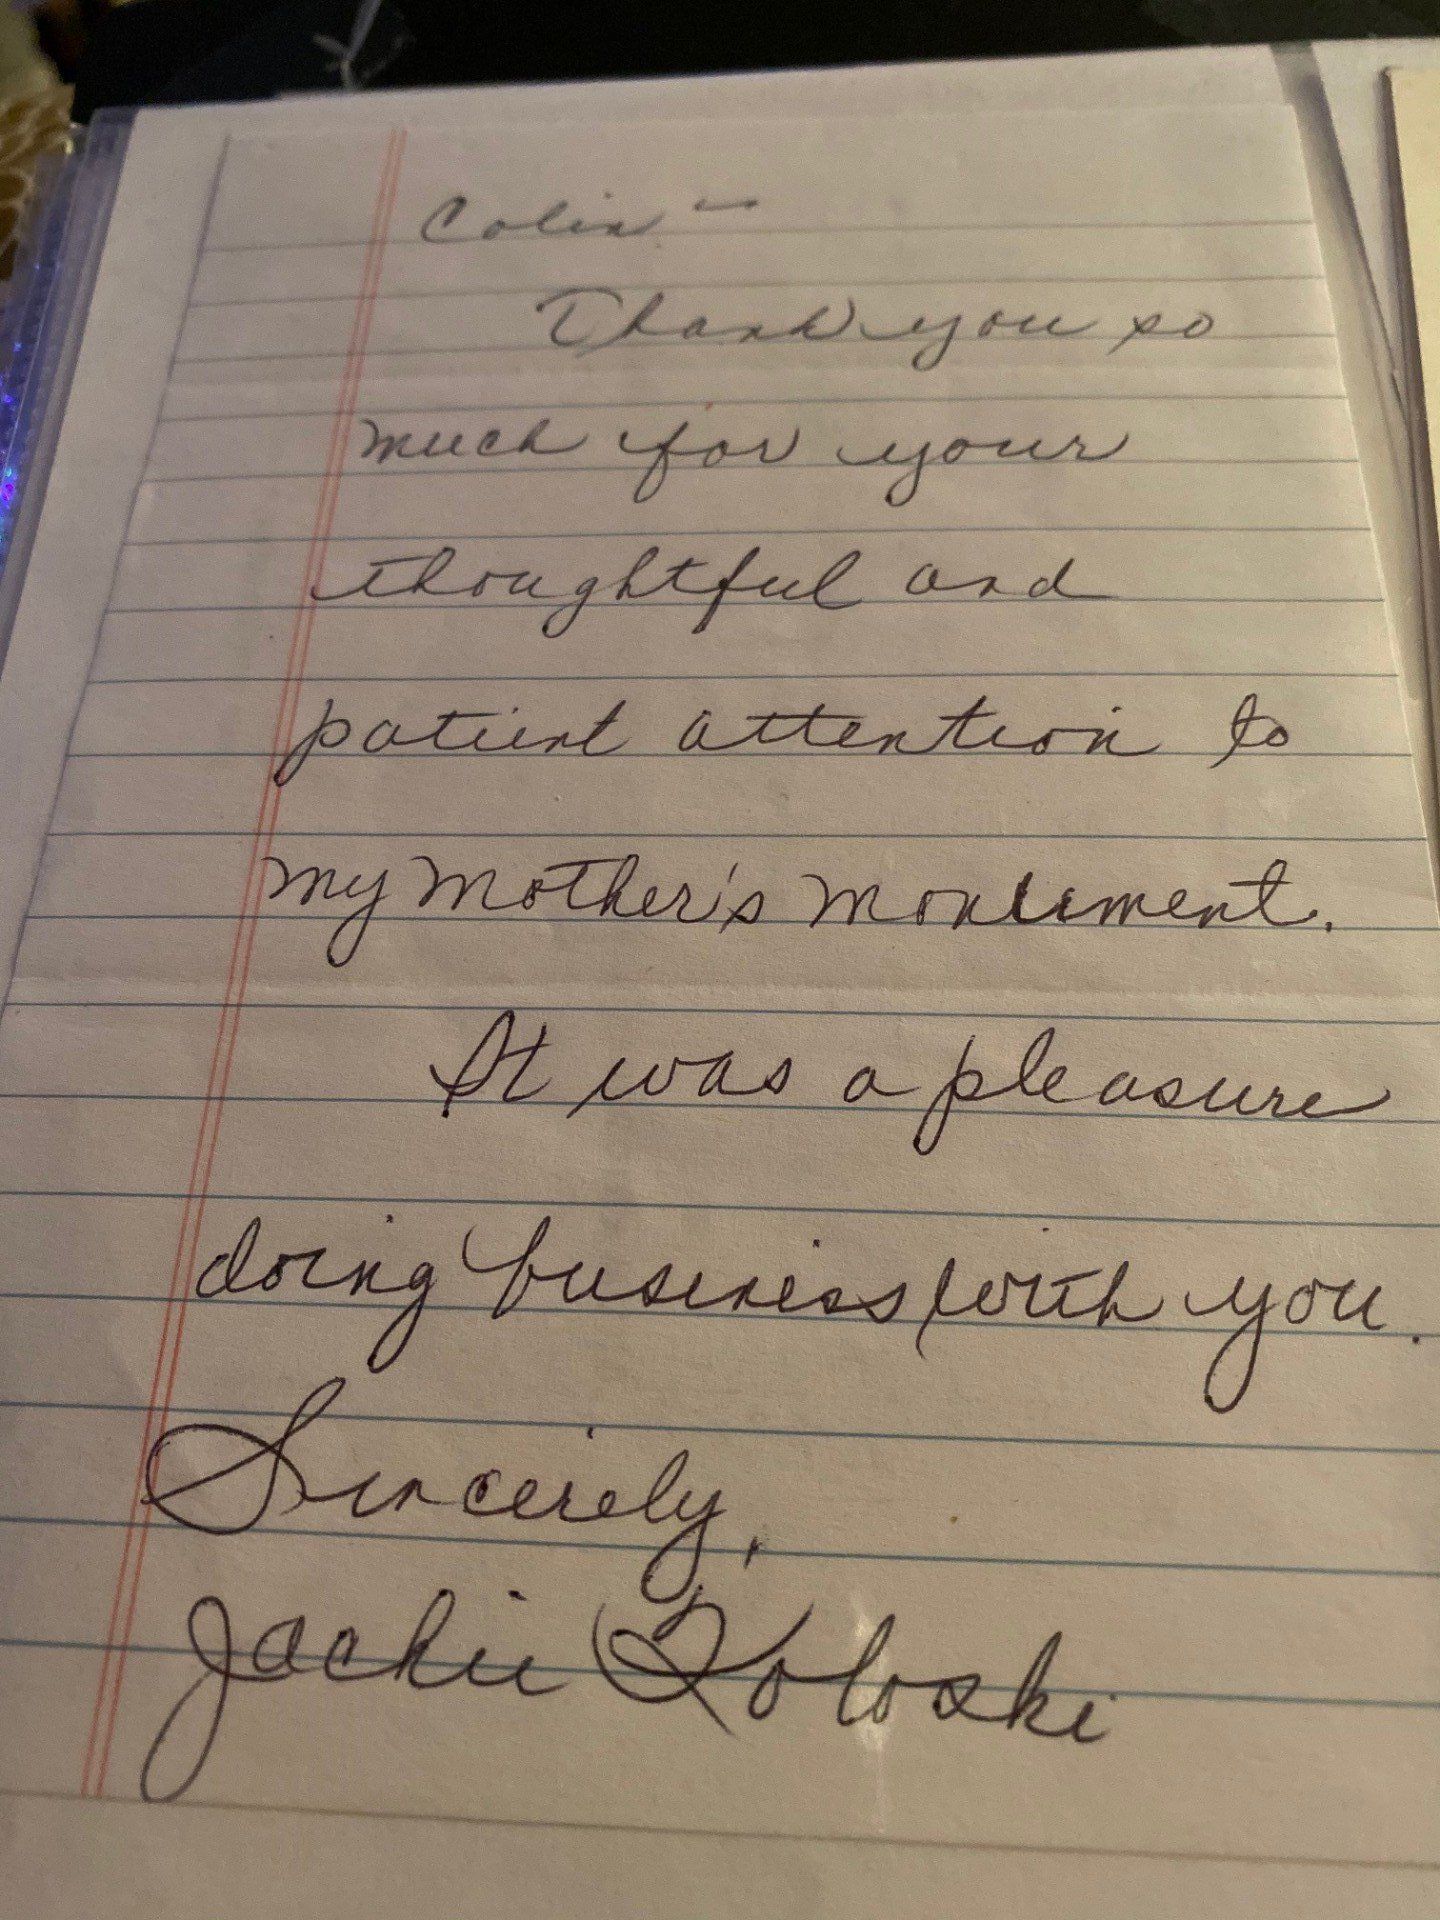 Colin -
Thank you so
much for your
thoughtful and
patient attention to
my mother's monument.
It was a pleasure
doing business with you.
Sincerely,
Jackie